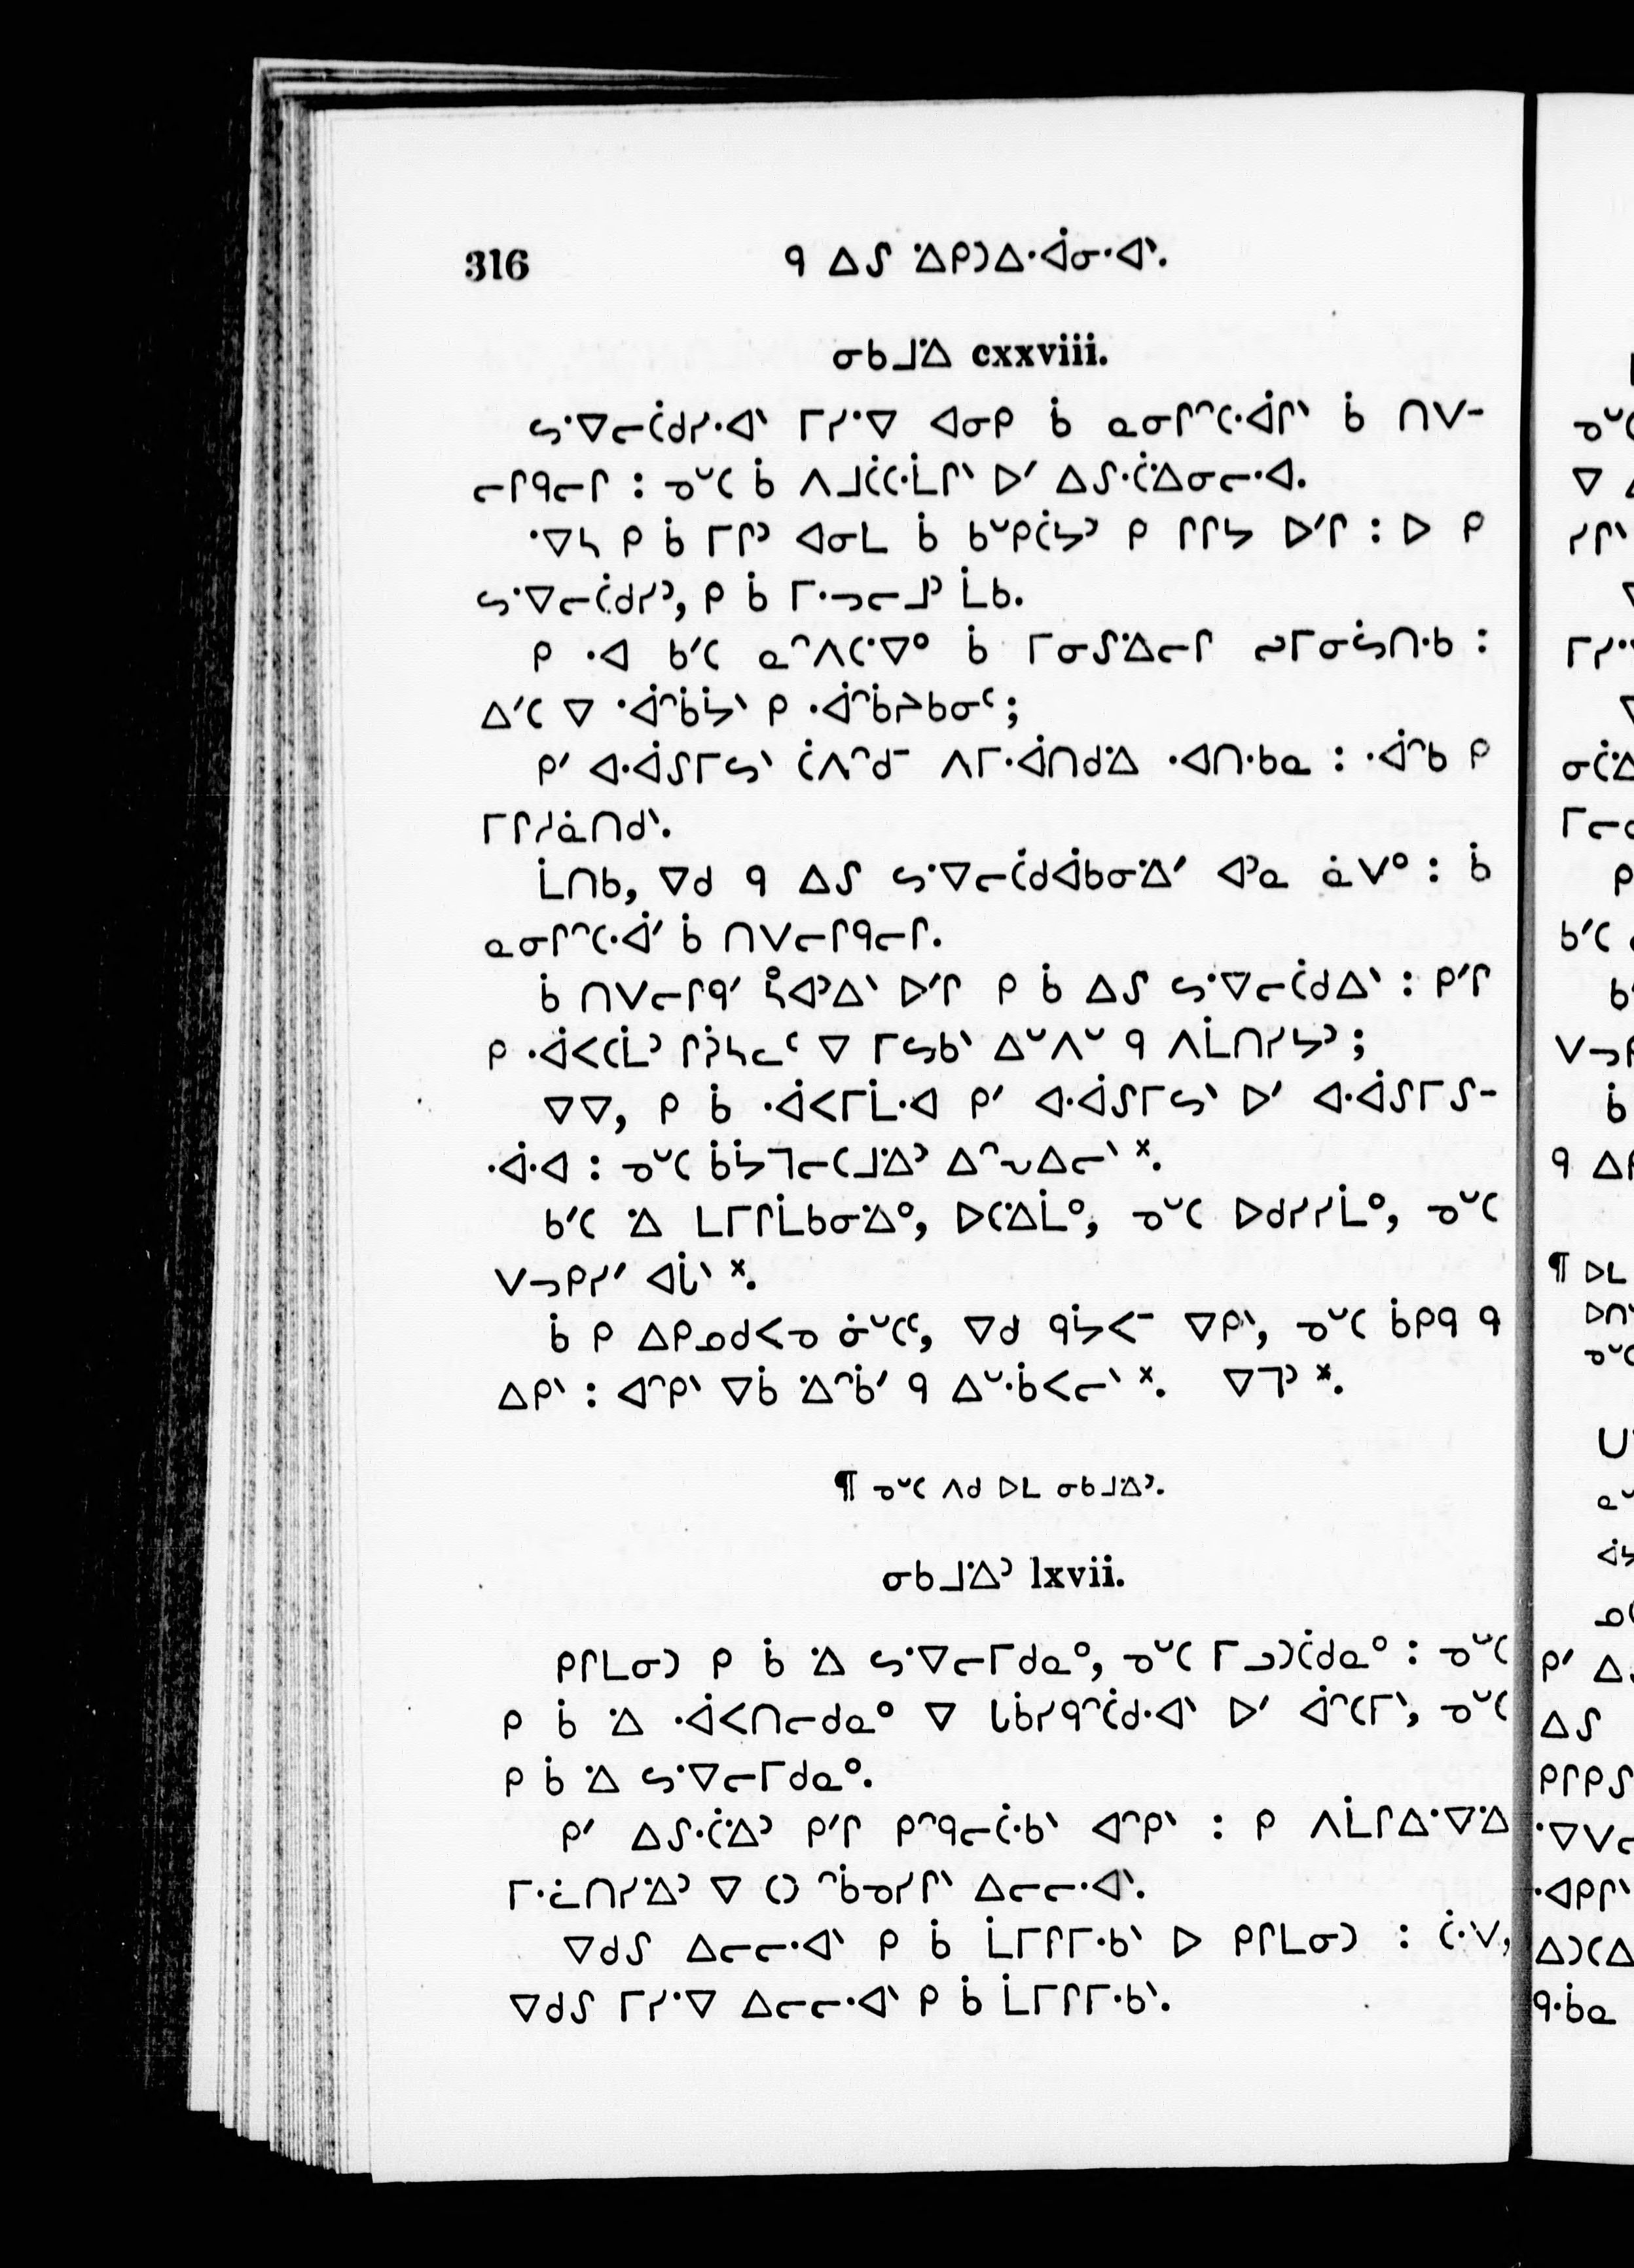 316 ᑫ ᐃᔑ ᐐᑭᑐᐃᐧᐋᓂᐧᐊᐠ.
ᓂᑲᒧᐎ cxxviii.
ᓴᐧᐁᓕᑖᑯᓯᐧᐊᐠ ᒥᓯᐧᐁ ᐊᓂᑭ ᑳ ᓇᓂᒋᐢᑕᐧᐋᒋᐠ ᑳ ᑎᐯ-
ᓕᒋᑫᓕᒋ : ᓀᐡᑕ ᑳ ᐱᒧᑖᑕᐧᒫᒋᐠ ᐅᐟ ᐃᔑᐧᑖᐎᓂᓕᐧᐊ.
ᐧᐁᓴ ᑭ ᑳ ᒥᒋᐣ ᐊᓂᒪ ᑳ ᑲᐡᑭᑖᔭᐣ ᑭ ᒋᒋᔭ ᐅᐟᒋ : ᐅ ᑭ
ᓴᐧᐁᓕᑖᑯᓯᐣ, ᑭ ᑳ ᒥᐧᓓᓕᒧᐣ ᒫᑲ.
ᑭ ᐧᐊ ᑲᐟᑕ ᓇᐢᐱᑕᐧᐁᐤ ᑳ ᒥᓂᔑᐎᓕᒋ ᔓᒥᓂᐦᑎᐧᑲ :
ᐃᐟᑕ ᐁ ᐧᐋᐢᑳᔮᐠ ᑭ ᐧᐋᐢᑳᐃᑲᓂᐨ;
ᑭᐟ ᐊᐧᐋᔑᒥᓴᐠ ᑖᐱᐢᑯᐨ ᐱᒥᐧᐋᑎᑯᐎ ᐧᐊᑎᐧᑲᓇ : ᐧᐋᐢᑲ ᑭ
ᒥᒋᓱᓈᑎᑯᐠ.
ᒫᑎᑲ, ᐁᑯ ᑫ ᐃᔑ ᓴᐧᐁᓕᑖᑯᐋᑲᓂᐎᐟ ᐊᐣᓇ ᓈᐯᐤ : ᑳ
ᓇᓂᒋᐢᑕᐧᐋᐟ ᑳ ᑎᐯᓕᒋᑫᓕᒋ.
ᑳ ᑎᐯᓕᒋᑫᐟ ᓵᐊᐣᐃᐠ ᐅᐟᒋ ᑭ ᑳ ᐃᔑ ᓴᐧᐁᓕᑖᑯᐃᐠ : ᑭᐟᒋ
ᑭ ᐧᐋᐸᑕᒫᐣ ᒋᕒᓴᓓᐨ ᐁ ᒥᓴᑲᐠ ᐃᐡᐱᐡ ᑫ ᐱᒫᑎᓯᔭᐣ;
ᐁᐁ, ᑭ ᑳ ᐧᐋᐸᒥᒫᐧᐊ ᑭᐟ ᐊᐧᐋᔑᒥᓴᐠ ᐅᐟ ᐊᐧᐋᔑᒥᔑ-
ᐧᐋᐧᐊ : ᓀᐡᑕ ᑳᔭᒣᓕᑕᒧᐎᐣ ᐃᐢᕒᐃᓕᐠ ᙮
ᑲᐟᑕ ᐎ ᒪᒥᒋᒫᑲᓂᐎᐤ, ᐅᑕᐎᒫᐤ, ᓀᐡᑕ ᐅᑯᓯᓯᒫᐤ, ᓀᐡᑕ
ᐯᓓᑭᓯᐟ ᐊᒑᐠ ᙮
ᑳ ᑭ ᐃᑭᓄᑯᐸᓀ ᓃᐡᑕᑦ, ᐁᑯ ᑫᔮᐸᐨ ᐁᑭᐠ, ᓀᐡᑕ ᑳᑭᑫ ᑫ
ᐃᑭᐠ : ᐊᐢᑭᐠ ᐁᑳ ᐐᐢᑳᐟ ᑫ ᐃᐡᐧᑳᐸᓕᐠ ᙮ ᐁᒣᐣ ᙮
¶ ᓀᐡᑕ ᐱᑯ ᐅᒪ ᓂᑲᒧᐎᐣ.
ᓂᑲᒧᐎᐣ lxvii.
ᑭᒋᒪᓂᑐ ᑭ ᑳ ᐎ ᓴᐧᐁᓕᒥᑯᓇᐤ, ᓀᐡᑕ ᒥᓗᑐᑖᑯᓇᐤ : ᓀᐡᑕ
ᑭ ᑳ ᐎ ᐧᐋᐸᑎᓕᑯᓇᐤ ᐁ ᒐᑳᓯᑫᐢᑖᑯᐧᐊᐠ ᐅᐟ ᐋᐢᑕᒥᐠ, ᓀᐡᑕ
ᑭ ᑳ ᐎ ᓴᐧᐁᓕᒥᑯᓇᐤ.
ᑭᐟ ᐃᔑᐧᑖᐎᐣ ᑭᐟᒋ ᑭᐢᑫᓕᑖᐧᑲᐠ ᐊᐢᑭᐠ : ᑭ ᐱᒫᒋᐃᐧᐁᐎ
ᒥᐧᓛᑎᓯᐎᐣ ᐁ ᑕᑐ ᐢᑳᓀᓯᒋᐠ ᐃᓕᓕᐧᐊᐠ.
ᐁᑯᔑ ᐃᓕᓕᐧᐊᐠ ᑭ ᑳ ᒫᒥᒋᒥᐧᑲᐠ ᐅ ᑭᒋᒪᓂᑐ : ᑖᐧᐯ,
ᐁᑯᔑ ᒥᓯᐧᐁ ᐃᓕᓕᐧᐊᐠ ᑭ ᑳ ᒫᒥᒋᒥᐧᑲᐠ.